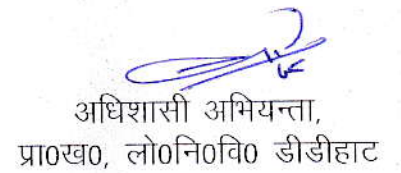 अधिशासी अभियन्ता,
प्रा0ख0, लो0नि0वि0 डीडीहाट